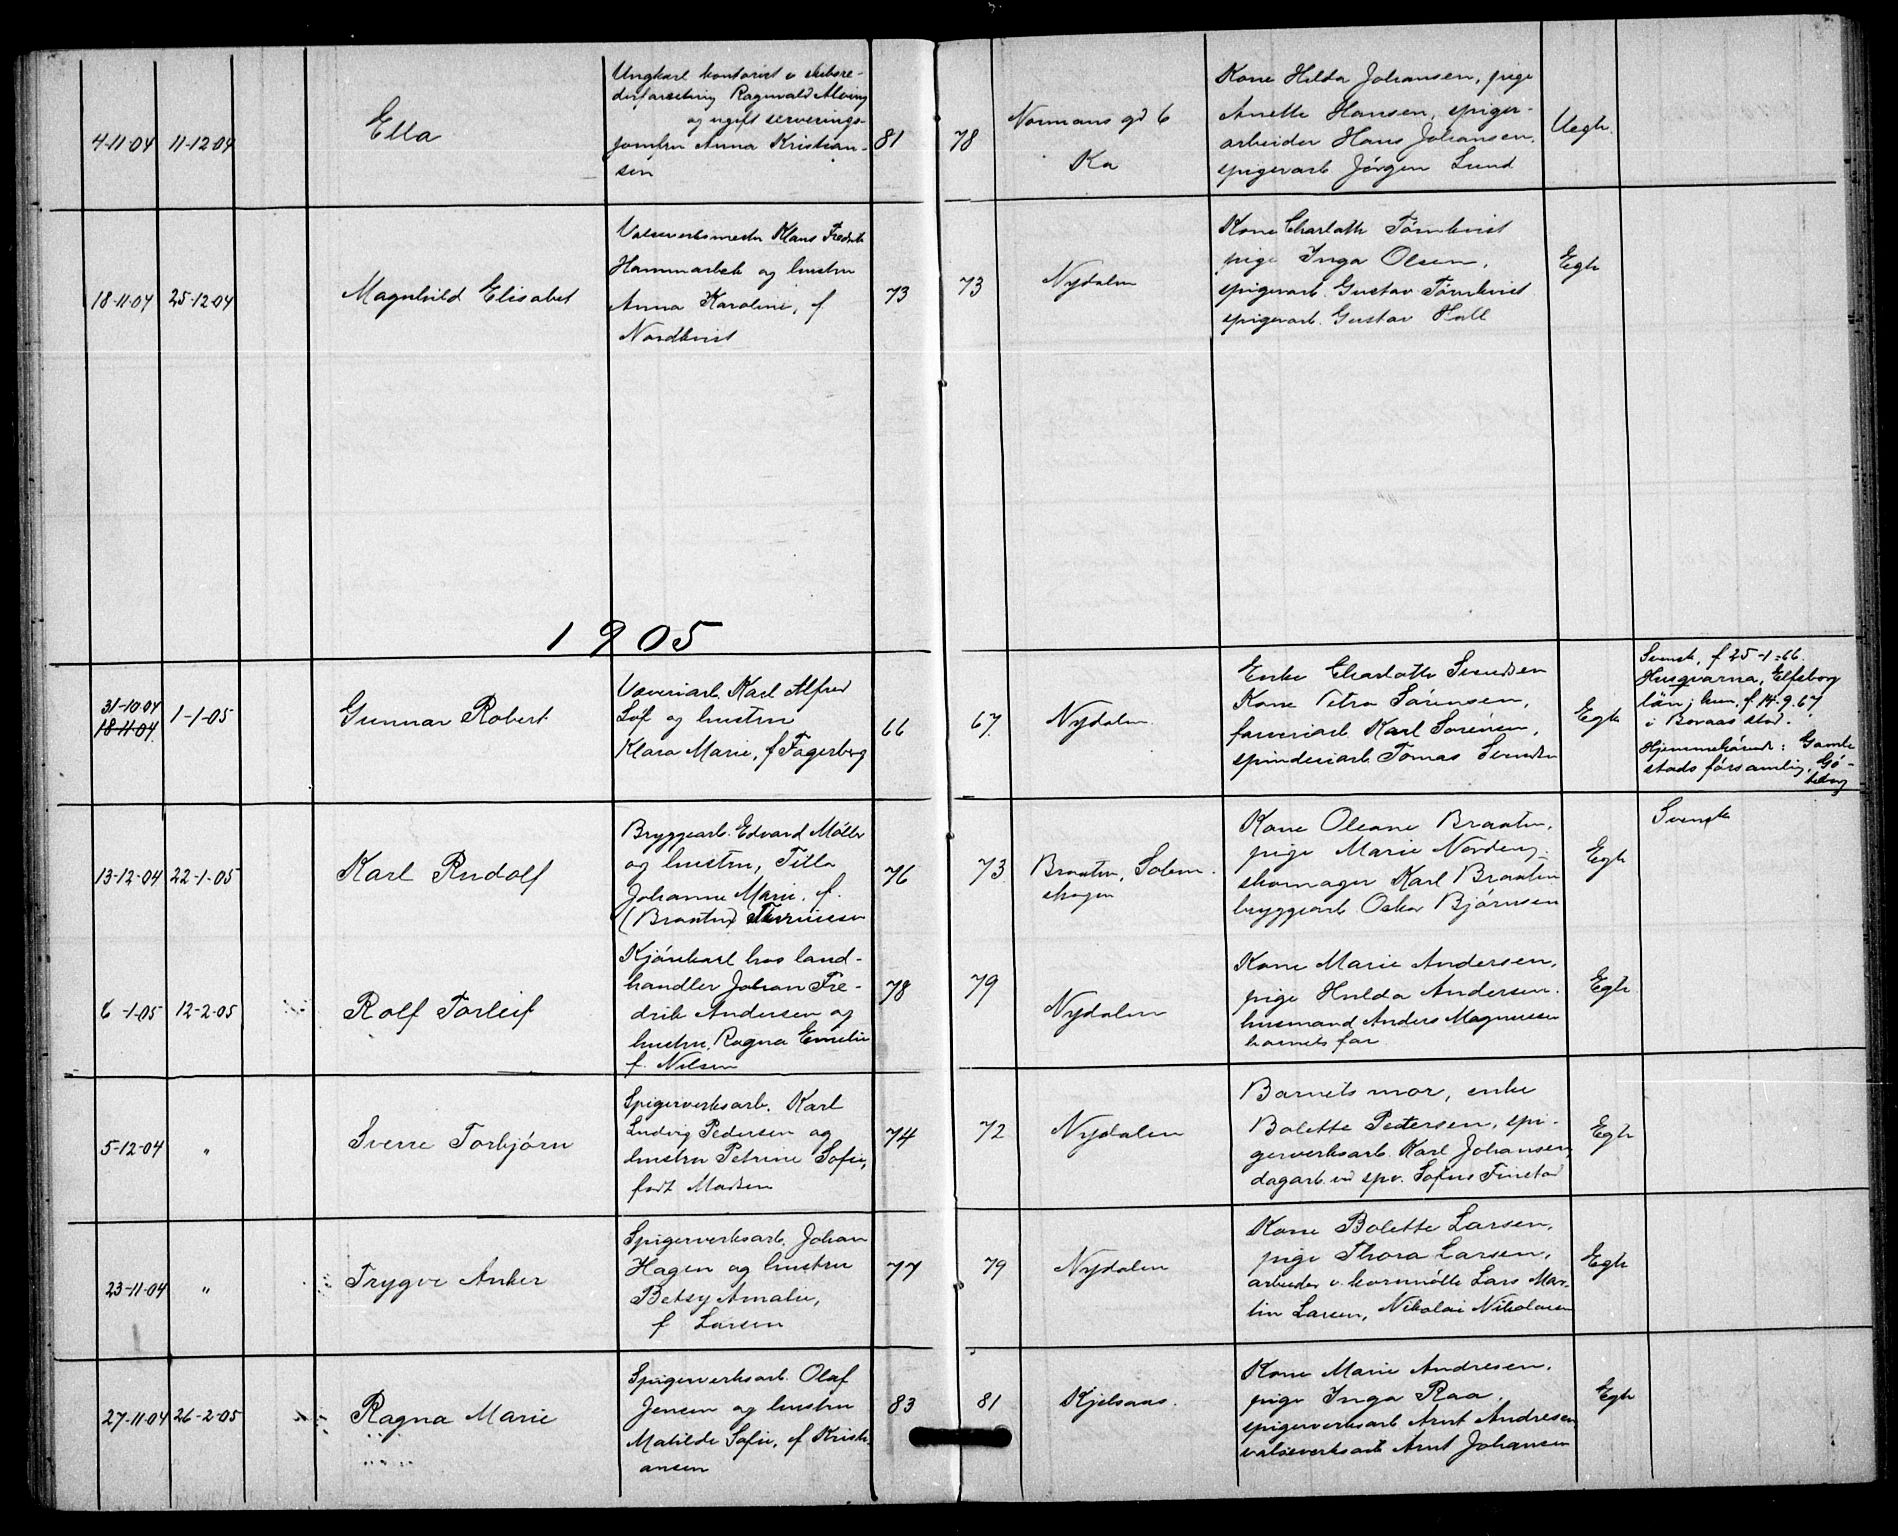 4-11-04
11-12-04
Ella
Ungkarl kontorist v skibsre-
derforretning Ragnvald Alving
og ugift serverings-
jomfru Anna Kristian-
sen
81
78
Normans gd 6
Ka
Kone Hilda Johansen, pige
Anette Hansen, spiger-
arbeider Hans Johansen,
spigerarb Jörgen Lund
Uegte
18-11-04
25-12-04
Magnhild Elisabet
Valseverksmester Klaus Fredrik
Hammarbek og hustru
Anna Karoline, f
Nordkvist
73
73
Nydalen
Kone Charlotte Törnkvist
pige Inga Olsen,
spigerarb. Gustav Törnkvist
spigerarb. Gustav Hall
Egte
1905
31-10-04
18-11-04
1-1-05
Gunnar Robert
Væveriarb. Karl Alfred
Löf og hustru
Klara Marie, f Fagerberg
66
67
Nydalen
Enke Charlotte Svendsen
Kone Petra Sørensen,
farveriarb Karl Sørensen,
spinderiarb Tomas Svendsen
Egte
Svensk, f 25-1-66.
Husqvarna, Elfsborg
län; hun, f 14-9-67
i Boraas stad.
Hjemmehörende: Gamle
stads församling, Gö-
teborg
13-12-04
22-1-05
Karl Rudolf
Bryggearb. Edvard Möller
og hustru, Tilla
Johanne Marie, f.
(Braaten)
76
73
Braaten, Solem-
skogen
Kone Oleane Braaten,
pige Marie Nordeng,
skomager Karl Braaten
bryggearb Oskar Bjørnsen
Egte
Svensk
6-1-05
12-2-05
Rolf Torleif
Kjörekarl hos land-
handler Johan Fre-
drik Andersen og
hustru, Ragna Emelie
f. Nilsen
78
79
Nydalen
Kone Marie Andersen,
pige Hulda Andersen.
husmand Anders Magnussen
barnets far
Egte
5-12-04
"
Sverre Torbjørn
Spigerverksarb. Karl
Ludvig Pedersen og
hustru Petrine Sofie,
født Madsen
74
72
Nydalen
Barnets mor, enke
Bolette Pedersen, spi-
gerverksarb. Karl Johansen,
dagarb. ved spv. Sofus Finstad
Egte
23-11-04
"
Trygve Anker
Spigerverksarb. Johan
Hagen og hustru
Betzy Amalie,
f Larsen
77
79
Nydalen
Kone Bolette Larsen,
pige Thora Larsen,
arbeider v. kornmölle Lars Mar-
tin Larsen, Nikolai Nikolaisen
Egte
27-11-04
26-2-05
Ragna Marie
Spigerverksarb. Olaf
Jensen og hustru
Matilde Sofie, f Kristi-
ansen
83
81
Kjelsaas.
Kone Marie Andresen,
pige Inga Raa,
spigerverksarb Arnt Andresen,
valseverksarb Arnt Johansen
Egte